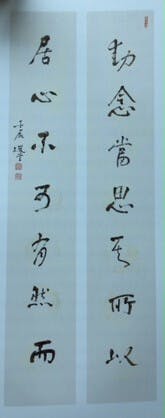 動念當思其所以
居心不可有然而
壬辰